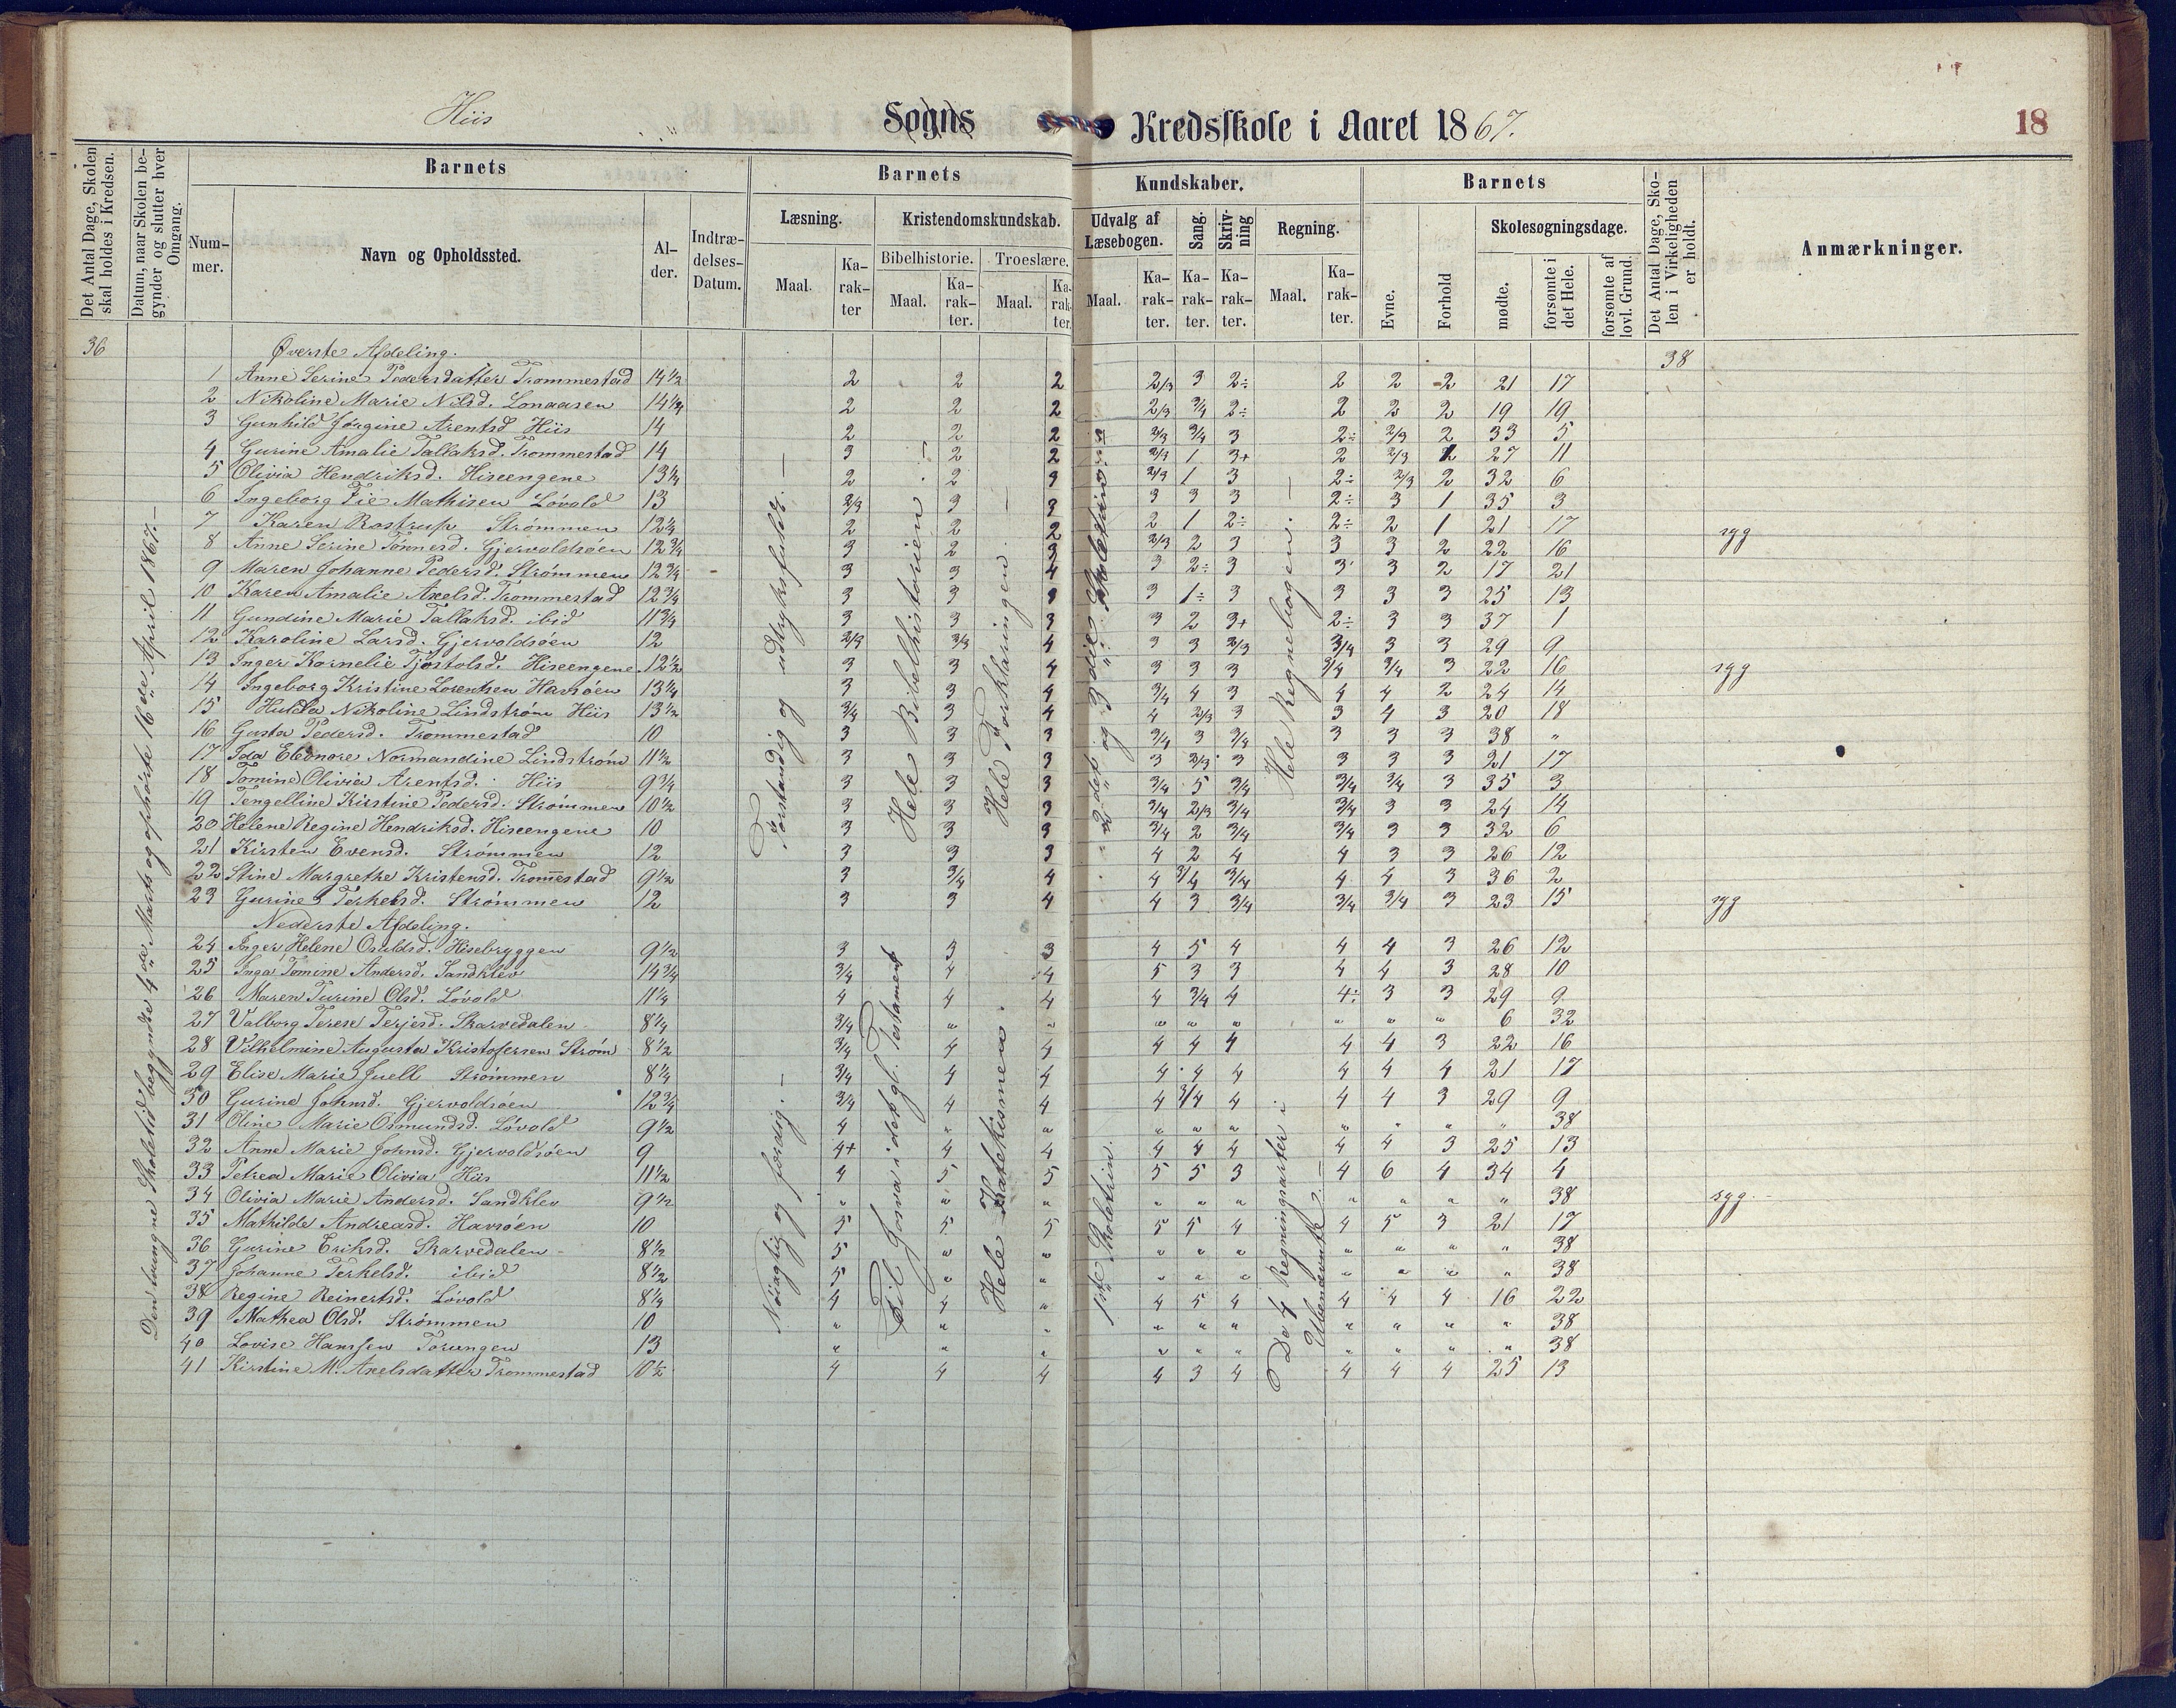 Hiis Sogns Kredsskole i Aaret 1867. 18
Det Antal Dage, Skolen skal holdes i Kredsen.
Datum, naar Skolen begynder og slutter hver Omgang.
Barnets
Barnets
Kundskaber.
Barnets
Det Antal Dage, Skolen i Virkeligheden er holdt.
Anmærkninger.
Nummer.
Navn og Opholdssted.
Alder.
Indtrædelses-Datum.
Læsning.
Kristendomskundskab.
Udvalg af Læsebogen.
Sang.
Skrivning
Regning.
Evne.
Forhold
Skolesøgningsdage.
Bibelhistorie.
Troeslære.
Maal. Karakter Maal. Karakter. Maal. Karakter. Maal. Karakter. Karakter. Karakter. Maal. Karakter.
mødte. forsømte i det Hele. forsømte af lovl. Grund.
36 Øverste Afdeling. 38
1 Anne Serine Pedersdatter Trommestad 14 1/2 2 2 2 2/3 3 2÷ 2 2 2 21 17
2 Nikoline Marie Nilsd. Lonaasen 14 1/4 2 2 2 2/3 3/4 2÷ 2 2 2 19 19
3 Gunhild Jørgine Arentsd Hiis 14 2 2 2 2/3 3/4 3 2÷ 2/3 2 33 5
4 Gurine Amalie Tallaksd. Trommestad 14 3 2 2 2/3 1 3+ 2 2/3 2 27 11
5 Olivia Hendriksd. Hiseengene 13 1/4 2 2 3 2/3 1 3 2÷ 2/3 2 32 6
6 Ingeborg Fie Mathisen Lóvold 13 2/3 3 3 3 3 3 2÷ 3 1 35 3
7 Karen Rostrup Strómmen 12 1/4 2 2 2 2 1 2÷ 2÷ 2 1 21 17 syg
8 Anne Serine Tónnesd. Gjervoldsóen 12 3/4 3 2 3 2/3 2 3 3 3 2 22 16
9 Maren Johanne Pedersd. Strómmen 12 3/4 3 3 4 3 2÷ 3 3 3 2 17 21
10 Karen Amalie Axelsd. Trommestad 12 3/4 3 3 3 3 1÷ 3 3 3 3 25 13
11 Gundine Marie Tallaksd. ibid 11 3/4 3 3 3 3 2 3+ 2÷ 3 3 37 1
12 Karoline Larsd. Gjervoldsóen 12 2/3 3/3 4 3 3 2/3 3/4 3 3 29 9
13 Inger Kornelie Tjóstolsd. Hiseengene 12 1/2 3 3 4 3 3 3 3/4 3/4 3 22 16 syg
14 Ingeborg Kristine Lorentsen Havsóen 13 1/4 3 3 4 3/4 4 3 4 4 2 24 14
15 Hulda Nikoline Lindstróm Hiis 13 1/2 3/4 3 4 4 2/3 3 3 4 3 20 18
16 Gusta Pedersd. Trommestad 10 3 3 3 3/4 3 3/4 3 3 3 38 "
17 Ida Eleonore Normandine Lindstróm 11 1/2 3 3 3 3 2/3 3 3 3 3 21 17
18 Tomine Olivia Arentsd. Hiis 9 3/4 3 3 3 3/4 5 3/4 3/4 3/4 3 35 3
19 Tengelline Kirstine Pedersd. Strómmen 10 1/2 3 3 3 3/4 2/3 3/4 3/4 3 3 24 14
20 Helene Regine Hendriksd. Hiseengene 10 3 3 3 3/4 2 3/4 3/4 3 3 32 6
21 Kirsten Evensd. Strómmen 12 3 3 3 4 2 4 4 3 3 26 12
22 Stine Margrethe Kristensd. Trommestad 9 1/2 3 3/4 4 4 3/4 3/4 4 4 3 36 2
23 Gurine Terkelsd. Strómmen 12 3 3 4 4 3 3/4 3/4 3/4 3 23 15 syg
Nederste Afdeling.
24 Inger Helene Osuldsd. Hisebryggen 9 1/2 3 3 3 4 5 4 4 4 3 26 12
25 Inga Tomine Andersd. Sandklev 14 3/4 3/4 4 4 5 3 3 4 4 3 28 10
26 Maren Turine Olsd. Lóvold 11 1/4 4 4 4 4 3/4 4 4÷ 3 3 29 9
27 Valborg Terese Terjesd. Skarvedalen 8 1/4 3/4 " " " " " " " " 6 32
28 Vilhelmine Augusta Kristofersen Stróm 8 1/2 3/4 4 4 4 4 4 4 4 3 22 16
29 Elise Marie Juell Strómmen 8 1/4 3/4 4 4 4 4 4 4 4 4 21 17
30 Gurine Johnsd. Gjervoldsóen 12 3/4 3/4 4 4 4 3/4 4 4 4 3 29 9
31 Oline Marie Osmundsd. Lóvold 9 1/2 4 " " " " " " " " " 38
32 Anne Marie Johnsd. Gjervoldsóen 9 4+ 4 4 4 4 4 4 4 3 25 13
33 Petrea Marie Olivia Hiis 11 1/2 4 5 5 5 5 3 4 6 4 34 4
34 Olivia Marie Andersd. Sandklev 9 1/2 " " " " " " " " " " 38 syg.
35 Mathilde Andreasd. Havsóen 10 5 5 5 5 5 4 4 5 3 21 17
36 Gurine Eriksd. Skarvedalen 8 1/2 5 " " " " " " " " " 38
37 Johanne Terkelsd. ibid 8 1/2 5 " " " " " " " " " 38
38 Regine Reinertsd. Lóvold 8 1/4 4 4 " 4 5 4 4 4 4 16 22
39 Mathea Olsd. Strómmen 10 " " " " " " " " " " 38
40 Lovise Hanssen Torungen 13 " " " " " " " " " " 38
41 Kirstine M. Axelsdatter Trommestad 10 1/2 4 4 4 4 3 4 4 4 4 25 13
Den tvungne Skoletid begyndte 4de Marts og ophørte 16de April 1867.
Forstandig og udtryksfuldt.
Hele Bibelhistorien
Hele Forklaringen.
2det og 3die Skoletrin.
Hele Regnebogen.
Nóiagtig og færdig.
Til Josva i det gl. Testament
Hele Katekismen.
1ste Skoletrin.
De 4 Regningsarter i
Ubenævnte